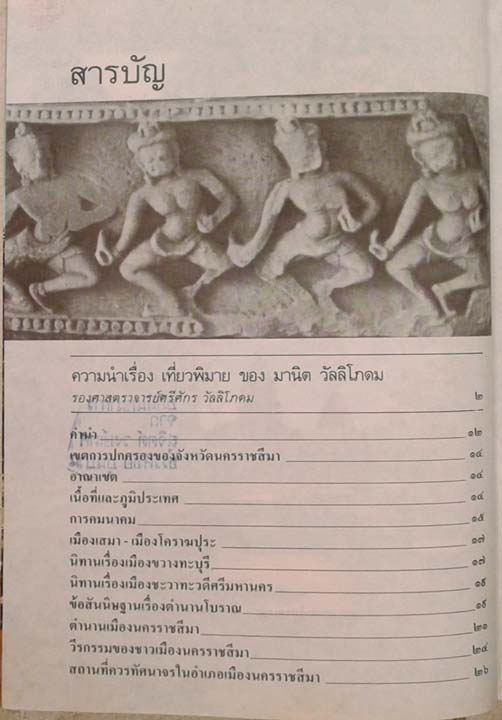 สารบัญ
ความนำเรื่อง เที่ยวพิมาย ของ มานิต วัลลิโภดม
รองศาสตราจารย์ศรีศักร วัลลิโภดม ๒
คำนำ ๑๒
เขตการปกครองของจังหวัดนครราชสีมา ๑๔
อาณาเขต ๑๔
เนื้อที่และภูมิประเทศ ๑๔
การคมนาคม ๑๕
เมืองเสมา - เมืองโคราฆปุระ ๑๗
นิทานเรื่องเมืองขวางทะบุรี ๑๗
นิทานเรื่องเมืองชะวาทะวดีศรีมหานคร ๑๙
ข้อสันนิษฐานเรื่องตำนานโบราณ ๑๙
ตำนานเมืองนครราชสีมา ๒๑
วีรกรรมของชาวเมืองนครราชสีมา ๒๔
สถานที่ควรทัศนาจรในอำเภอเมืองนครราชสีมา ๒๖